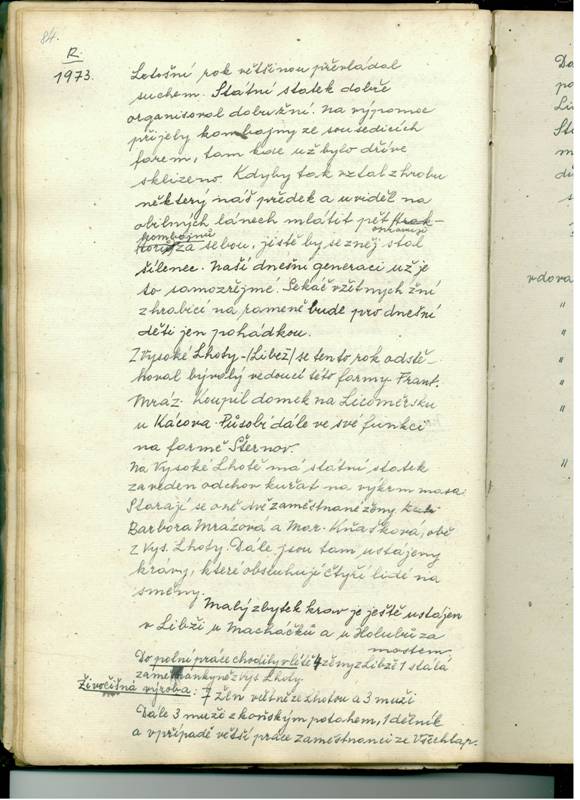 84.
R.
1973.
Letošní rok většinou převládal
suchem. Státní statek dobře
organisoval dobu žní. Na výpomoc
přijely kombajny ze sousedících
farem, tam kde už bylo dříve
sklizeno. Kdyby tak vztal z hrobu
některý náš předek a uviděl na
obilných lánech mlátit pět
kombajnů
za sebou, jistě by se z něj stal
šílenec. Naší dnešní generaci už je
to samozřejmé. Sekáč v žitných žní
z hrabicí na rameně bude pro dnešní
děti jen pohádkou.
Z Vysoké Lhoty-(Libež) se tento rok odstě-
hoval bývalý vedoucí této farmy Frant.
Mráz. Koupil domek na Licoměrsku
u Kácova. Působí dále ve své funkci
na farmě Šternov.
Na Vysoké Lhotě má státní statek
zaveden odchov kuřat na výkrm masa.
Starají se o ně dvě zaměstnané ženy
Barbora Mrázová a Mar. Kňasková, obě
z Vys. Lhoty. Dále jsou tam ustájeny
krávy, které obsluhují čtyři lidé na
směny.
Malý zbytek krav je ještě ustájen
v Libži u Macháčků a u Holubů za
mostem
Do polní práce chodily v létě 4 ženy z Libže 1 stálá
zaměstnankyně z Vys. Lhoty.
Živočišná výroba: 7 žen většině ze Lhotou a 3 muži
Dále 3 muži z koňským potahem, 1 dělník
a v případě větší práce zaměstnanci ze Všechlap.
vdova